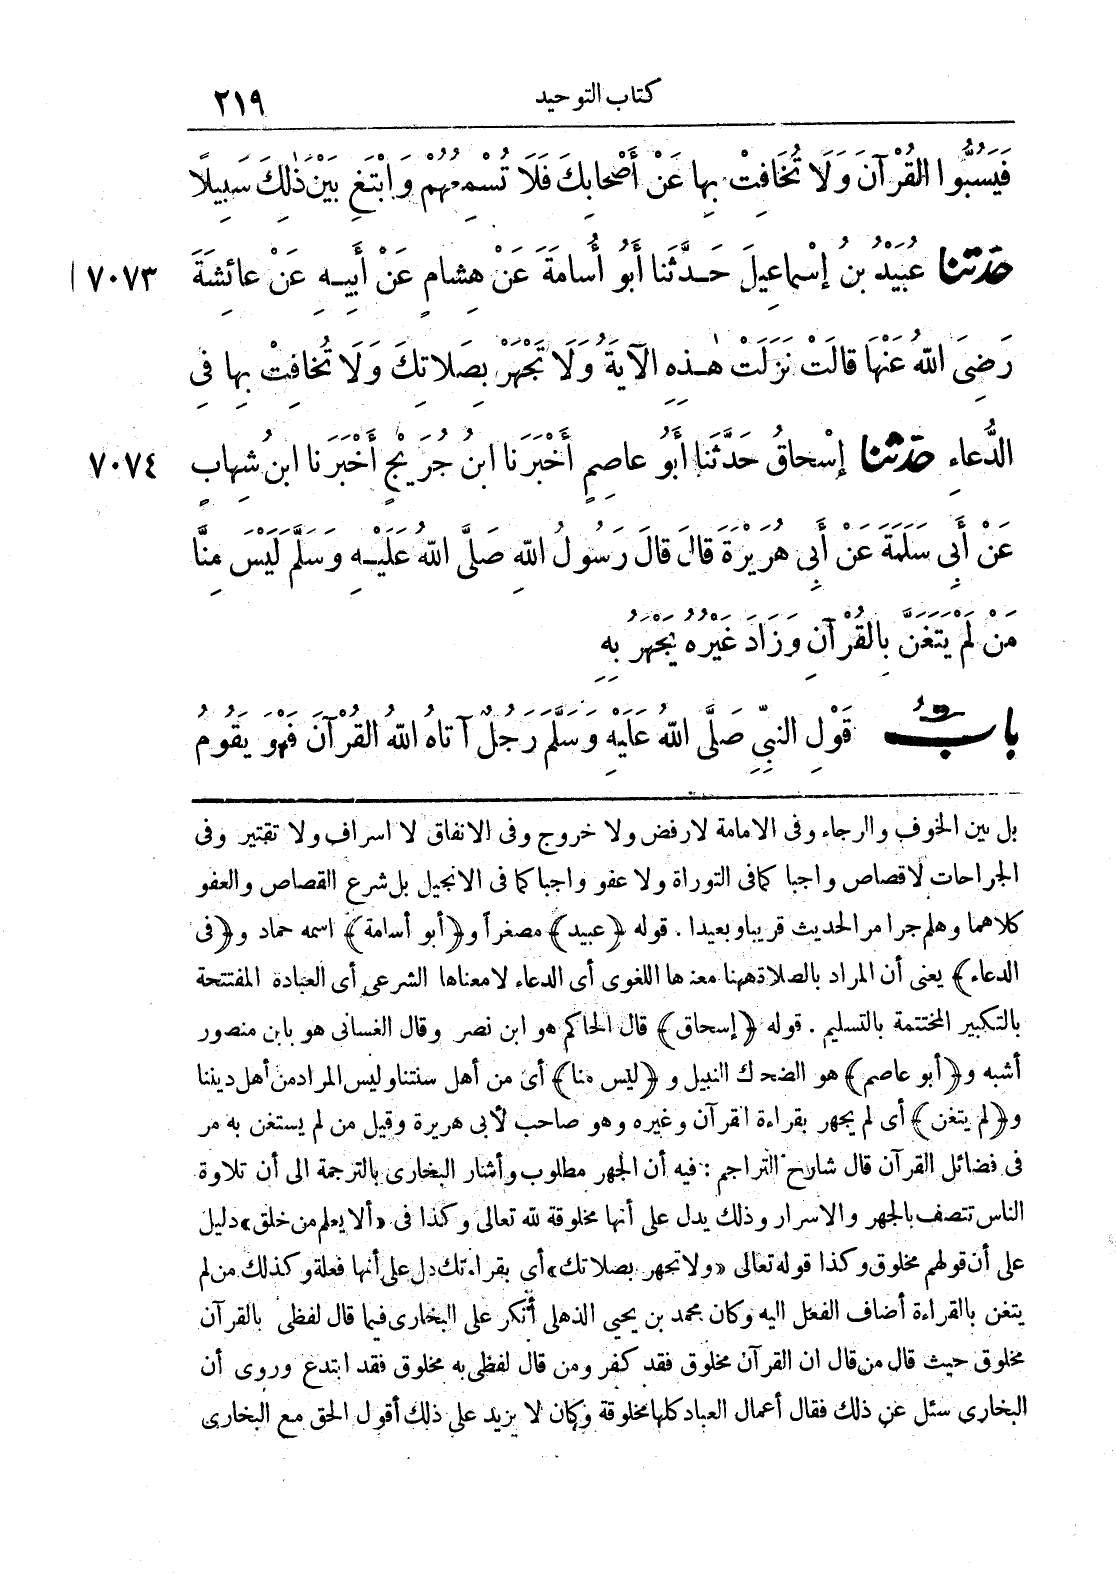 كتاب التوحيد
٢١٩
فَيَسُبُّوا الْقُرْآنَ وَلَا تُخَافِتْ بِهَا عَنْ أَصْحَابِكَ فَلَا تُسْمِعُهُمْ وَابْتَغِ بَيْنَ ذٰلِكَ سَبِيلًا
حَدَّثَنَا عُبَيْدُ بنُ إِسْمَاعِيلَ حَدَّثَنَا أَبُو أُسَامَةَ عَنْ هِشَامٍ عَنْ أَبِيهِ عَنْ عَائِشَةَ ٧٠٧٣
رَضِيَ اللهُ عَنْهَا قَالَتْ نَزَلَتْ هٰذِهِ الْآيَةُ وَلَا تَجْهَرْ بِصَلَاتِكَ وَلَا تُخَافِتْ بِهَا فِي
الدُّعَاءِ حَدَّثَنَا إِسْحَاقُ حَدَّثَنَا أَبُو عَاصِمٍ أَخْبَرَنَا ابْنُ جُرَيْجٍ أَخْبَرَنَا ابنُ شِهَابٍ ٧٠٧٤
عَنْ أَبِي سَلَمَةَ عَنْ أَبِي هُرَيْرَةَ قَالَ قَالَ رَسُولُ اللهِ صَلَّى اللهُ عَلَيْهِ وَسَلَّمَ لَيْسَ مِنَّا
مَنْ لَمْ يَتَغَنَّ بِالْقُرْآنِ وَزَادَ غَيْرُهُ يَجْهَرُ بِهِ
بابُ قَوْلِ النبيِّ صَلَّى اللهُ عَلَيْهِ وَسَلَّمَ رَجُلٌ آتَاهُ اللهُ الْقُرْآنَ فَهْوَ يَقُومُ
بل بين الخوف والرجاء وفى الامامة لارفض ولا خروج وفى الانفاق لا اسراف ولا تقتير وفى
الجراحات لاقصاص واجبا كمافى التوراة ولا عفو واجبا كما فى الانجيل بل شرع القصاص والعفو
كلاهما وهلم جرا مر الحديث قريبا وبعيدا . قوله ﴿عبيد﴾ مصغرا و﴿أبو أسامة﴾ اسمه حماد و﴿فى
الدعاء﴾ يعنى أن المراد بالصلاة ههنا معناها اللغوى أى الدعاء لامعناها الشرعى أى العبادة المفتتحة
بالتكبير المختتمة بالتسليم . قوله ﴿إسحاق﴾ قال الحاكم هو ابن نصر وقال الغسانى هو بابن منصور
أشبه و﴿أبو عاصم﴾ هو الضحاك النبيل و﴿ليس منا﴾ أى من أهل سنتنا وليس المراد من أهل ديننا
و﴿لم يتغن﴾ أى لم يجهر بقراءة القرآن وغيره وهو صاحب لأبى هريرة وقيل من لم يستغن به مر
فى فضائل القرآن قال شارح التراجم : فيه أن الجهر مطلوب وأشار البخارى بالترجمة الى أن تلاوة
الناس تتصف بالجهر والاسرار وذلك يدل على أنها مخلوقة لله تعالى وكذا فى «ألا يعلم من خلق» دليل
على أن قولهم مخلوق وكذا قوله تعالى «ولا تجهر بصلاتك» أي بقراءتك دل على أنها فعلة وكذلك من لم
يتغن بالقراءة أضاف الفعل اليه وكان محمد بن يحيى الذهلى أنكر على البخارى فيما قال لفظى بالقرآن
مخلوق حيث قال من قال ان القرآن مخلوق فقد كفر ومن قال لفظى به مخلوق فقد ابتدع وروى أن
البخارى سئل عن ذلك فقال أعمال العباد كلها مخلوقة وكان لا يزيد على ذلك أقول الحق مع البخارى